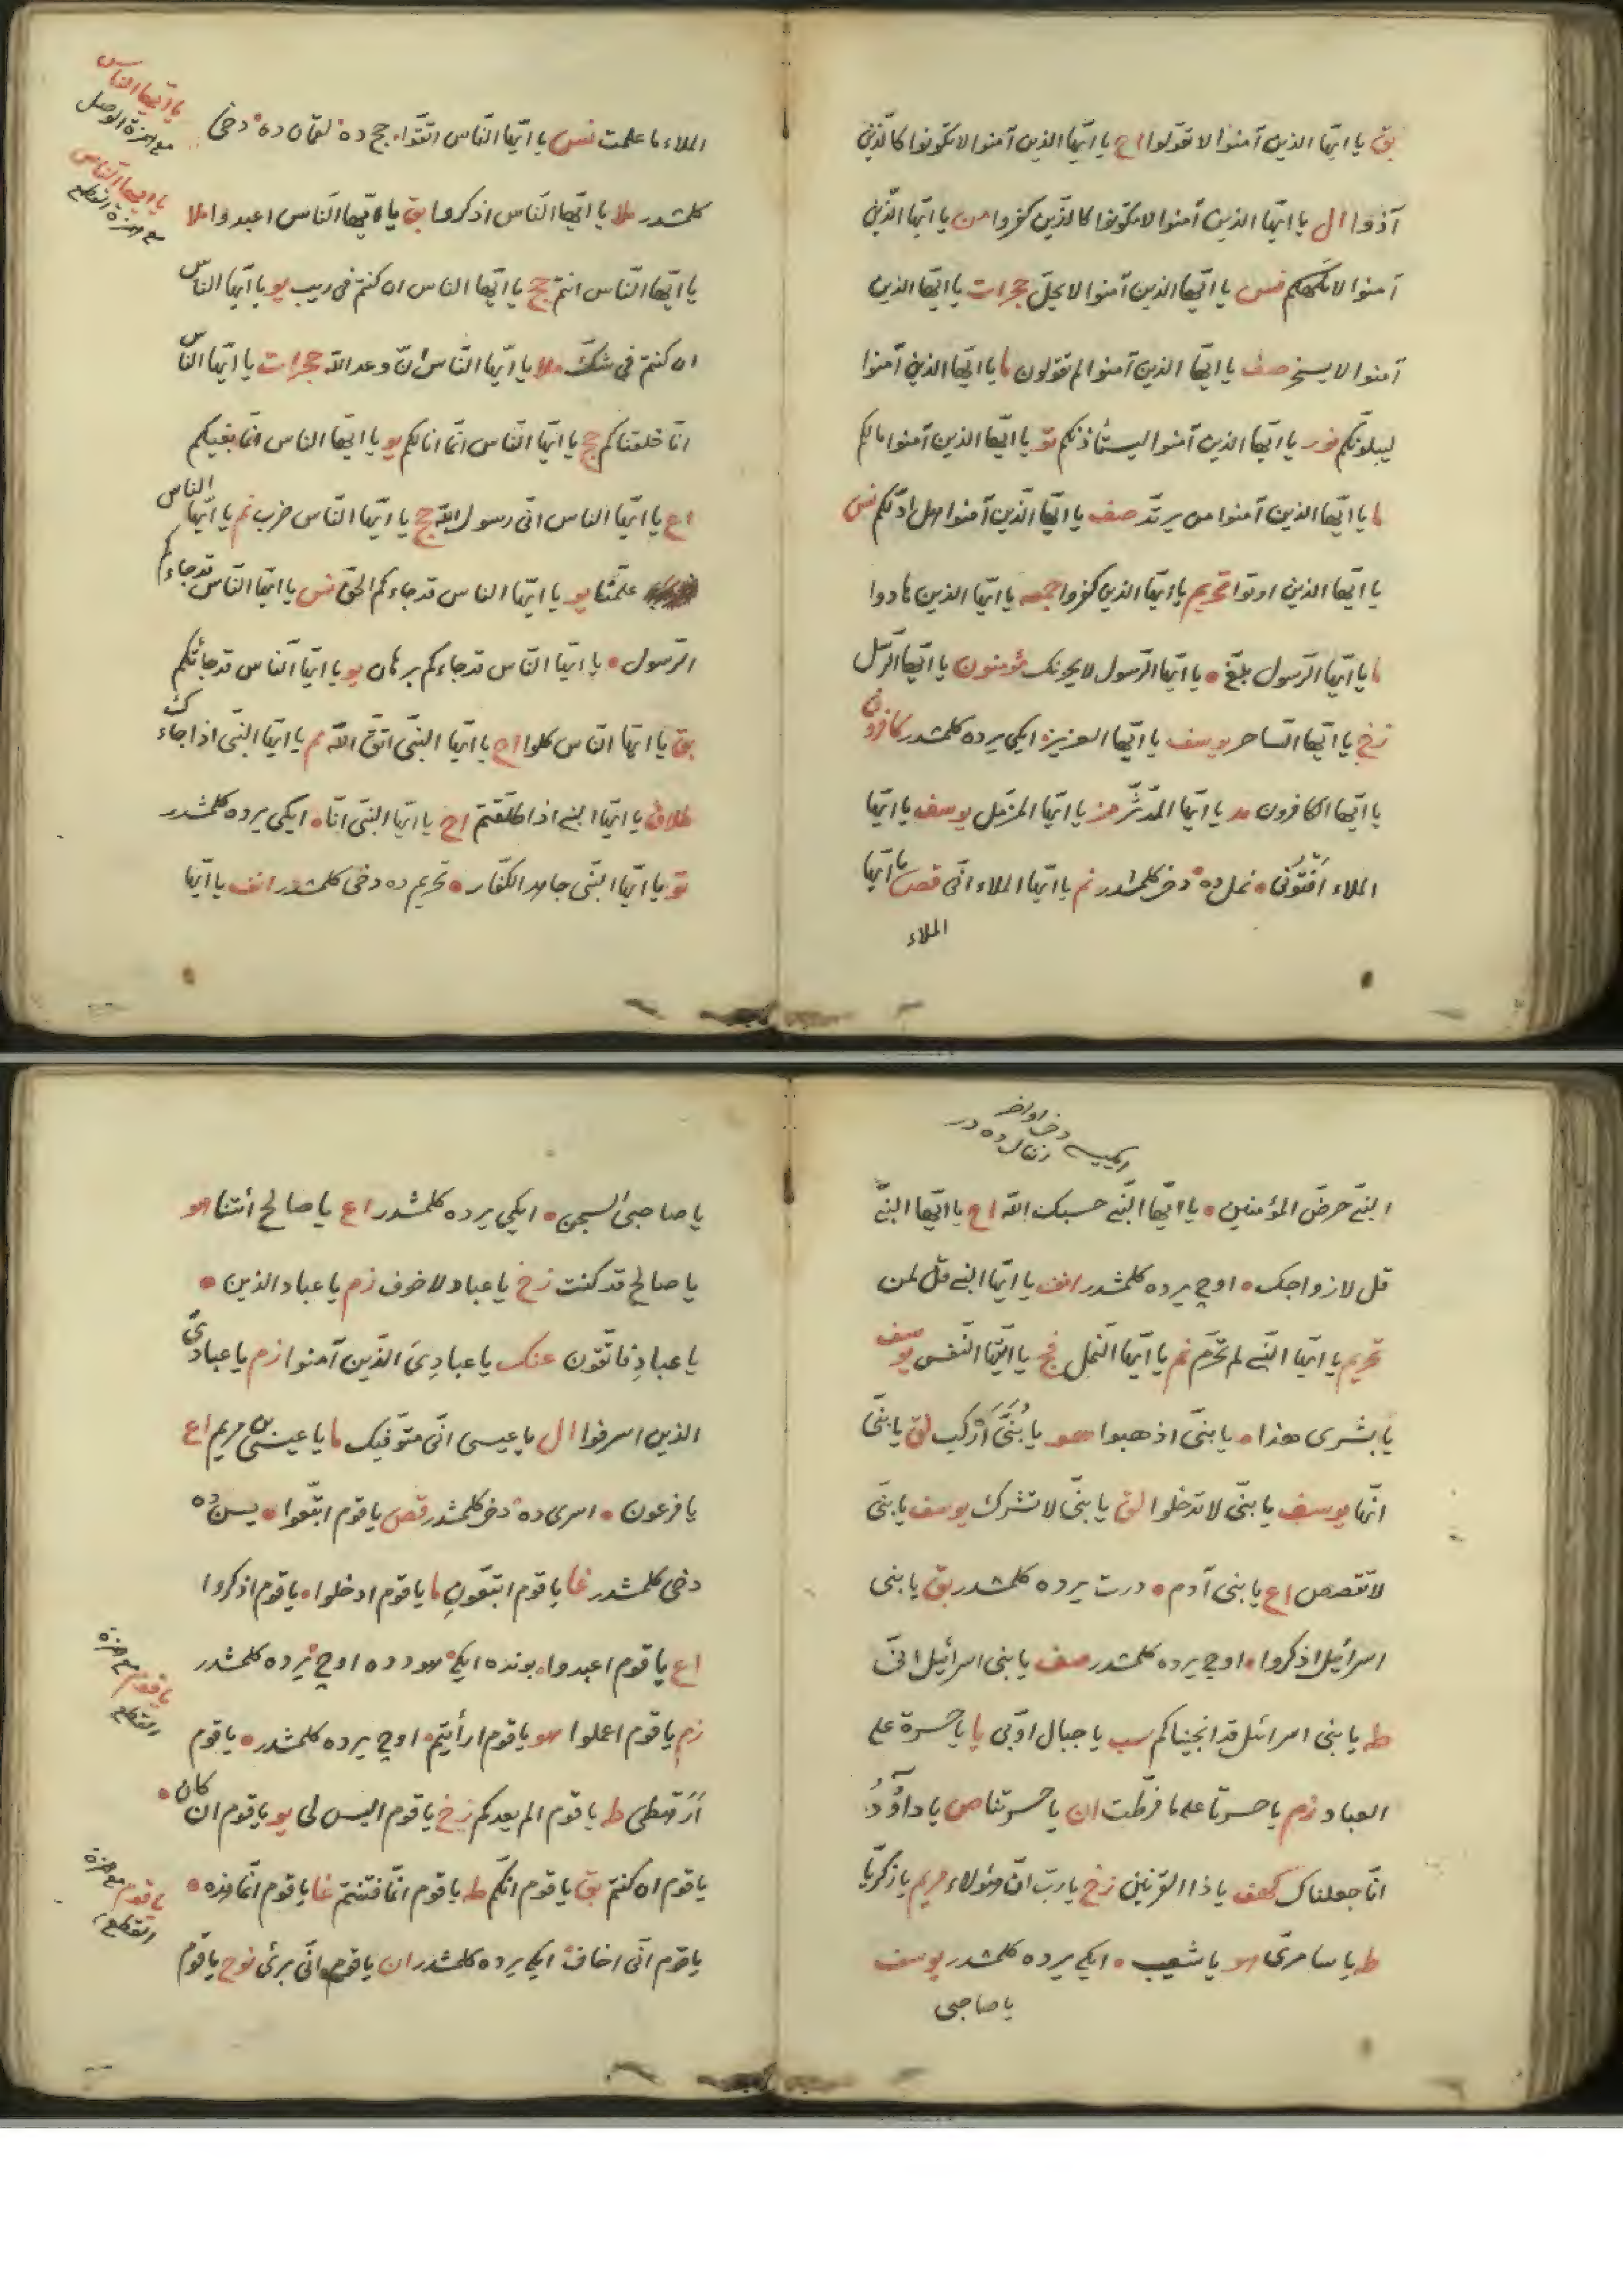 بق يا ايها الذين آمنوا لا تقولوا اح يا ايها الذين آمنوا لا تكونوا كالذين
آذوا ال يا ايها الذين آمنوا لا تكونوا كالذين كفروا من يا ايها الذين
آمنوا لا تلهكم نس يا ايها الذين آمنوا لا يحل حجرات يا ايها الذين
آمنوا لا يسخر صف يا ايها الذين آمنوا لم تقولون ما يا ايها الذين آمنوا
ليبلونكم نور يا ايها الذين آمنوا ليستأذنكم تو يا ايها الذين آمنوا مالكم
ما يا ايها الذين آمنوا من يرتد صف يا ايها الذين آمنوا هل ادلكم نس
يا ايها الذين اوتوا تحريم يا ايها الذين كفروا جمعه يا ايها الذين هادوا
ما يا ايها الرسول بلغ • يا ايها الرسول لا يحزنك مؤمنون يا ايها الرسل
زخ يا ايها الساحر يوسف يا ايها العزيز ايكى يرده كلمشدر كافرون
يا ايها الكافرون مد يا ايها المدثر مز يا ايها المزمل يوسف يا ايها
الملاء افتونى • نمل ده دخى كلمشدر نم يا ايها الملاء انى قص يا ايها
الملاء
يا ايها الناس
مع همزة الوصل
يا ايها الناس
مع همزة القطع
الملاء ما علمت نس يا ايها الناس اتقوا • حج ده لقمان ده دخى
كلمشدر ملا يا ايها الناس اذكروا بق يا ايها الناس اعبدوا ملا
يا ايها الناس انتم حج يا ايها الناس ان كنتم فى ريب يو يا ايها الناس
ان كنتم فى شك ملا يا ايها الناس ان وعد الله حجرات يا ايها الناس
انا خلقناكم حج يا ايها الناس انما انا لكم يو يا ايها الناس انما بغيكم
اع يا ايها الناس انى رسول الله حج يا ايها الناس ضرب نم يا ايها الناس
علمنا يو يا ايها الناس قد جاءكم الحق نس يا ايها الناس قد جاءكم
الرسول • يا ايها الناس قد جاءكم برهان يو يا ايها الناس قد جائتكم
بق يا ايها الناس كلوا اح يا ايها النبى اتق الله مم يا ايها النبى اذا جاءك
طلاق يا ايها النبى اذا طلقتم اح يا ايها النبى انا • ايكى يرده كلمشدر
تو يا ايها النبى جاهد الكفار • تحريم ده دخى كلمشدر انف يا ايها
النبى حرض المؤمنين • يا ايها النبى حسبك الله اح يا ايها النبى
قل لازواجك • اوچ يرده كلمشدر انف يا ايها النبى قل لمن
تحريم يا ايها النبى لم تحرم نم يا ايها النمل فج يا ايتها النفس يوسف
يا بشرى هذا • يا بنى اذهبوا هو يا بنى اركب لق يا بنى
انها يوسف يا بنى لا تدخلوا لق يا بنى لا تشرك يوسف يا بنى
لا تقصص اع يا بنى آدم • درت يرده كلمشدر بق يا بنى
اسرائيل اذكروا • اوچ يرده كلمشدر صف يا بنى اسرائيل انى
طه يا بنى اسرائيل قد انجيناكم سب يا جبال اوبى يا يا حسرة على
العباد زم يا حسرتا على ما فرطت ان يا حسرتنا ص يا داود
انا جعلناك كهف يا ذا القرنين زخ يا رب ان هؤلاء مريم يا زكريا
طه يا سامرى هو يا شعيب • ايكى يرده كلمشدر يوسف
يا صاحبى
يا صاحبى السجن • ايكى يرده كلمشدر اع يا صالح ائتنا هو
يا صالح قد كنت زخ يا عباد لا خوف زم يا عباد الذين •
يا عباد فاتقون عنك يا عبادى الذين آمنوا زم يا عبادى
الذين اسرفوا ال يا عيسى انى متوفيك ما يا عيسى بن مريم اع
يا فرعون • اسرى ده دخى كلمشدر قص يا قوم اتبعوا • يس ده
دخى كلمشدر غا يا قوم اتبعون ما يا قوم ادخلوا • يا قوم اذكروا
اع يا قوم اعبدوا • بونده ايكى هودده اوچ يرده كلمشدر
زم يا قوم اعملوا هو يا قوم ارأيتم • اوچ يرده كلمشدر • يا قوم
ارهطى ط يا قوم الم يعدكم زخ يا قوم اليس لى يو يا قوم ان كان •
يا قوم ان كنتم بق يا قوم انكم طه يا قوم انما فتنتم غا يا قوم انما هذه •
يا قوم انى اخاف ايكى يرده كلمشدر ان يا قوم انى برئ نوح يا قوم
يا قوم مع همزة
القطع
يا قوم مع همزة
القطع